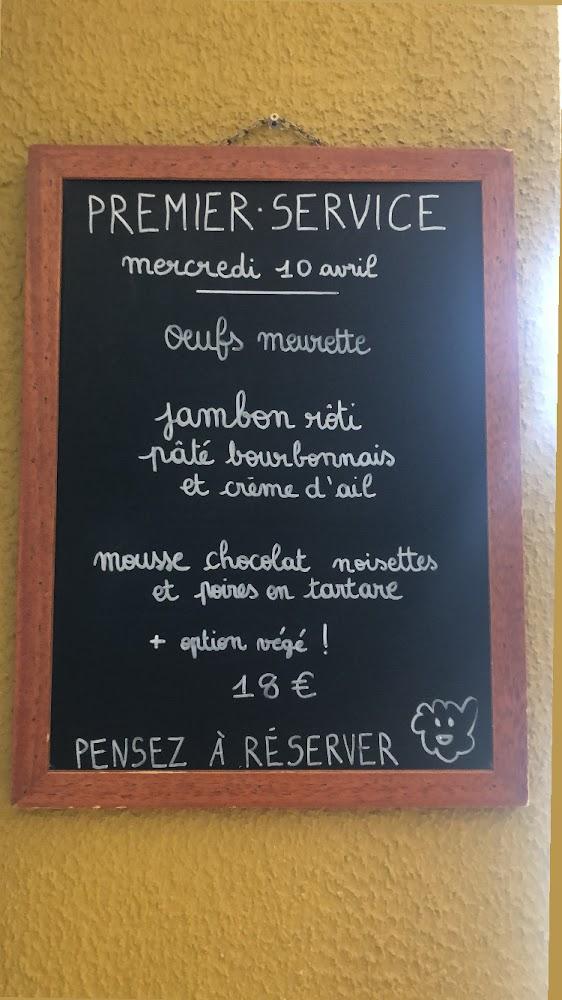 PREMIER·SERVICE
mercredi 10 avril
oeufs meurette
jambon rôti
pâté bourbonnais
et crème d'ail
mousse chocolat noisettes
et poires en tartare
+ option végé !
18 €
PENSEZ À RÉSERVER